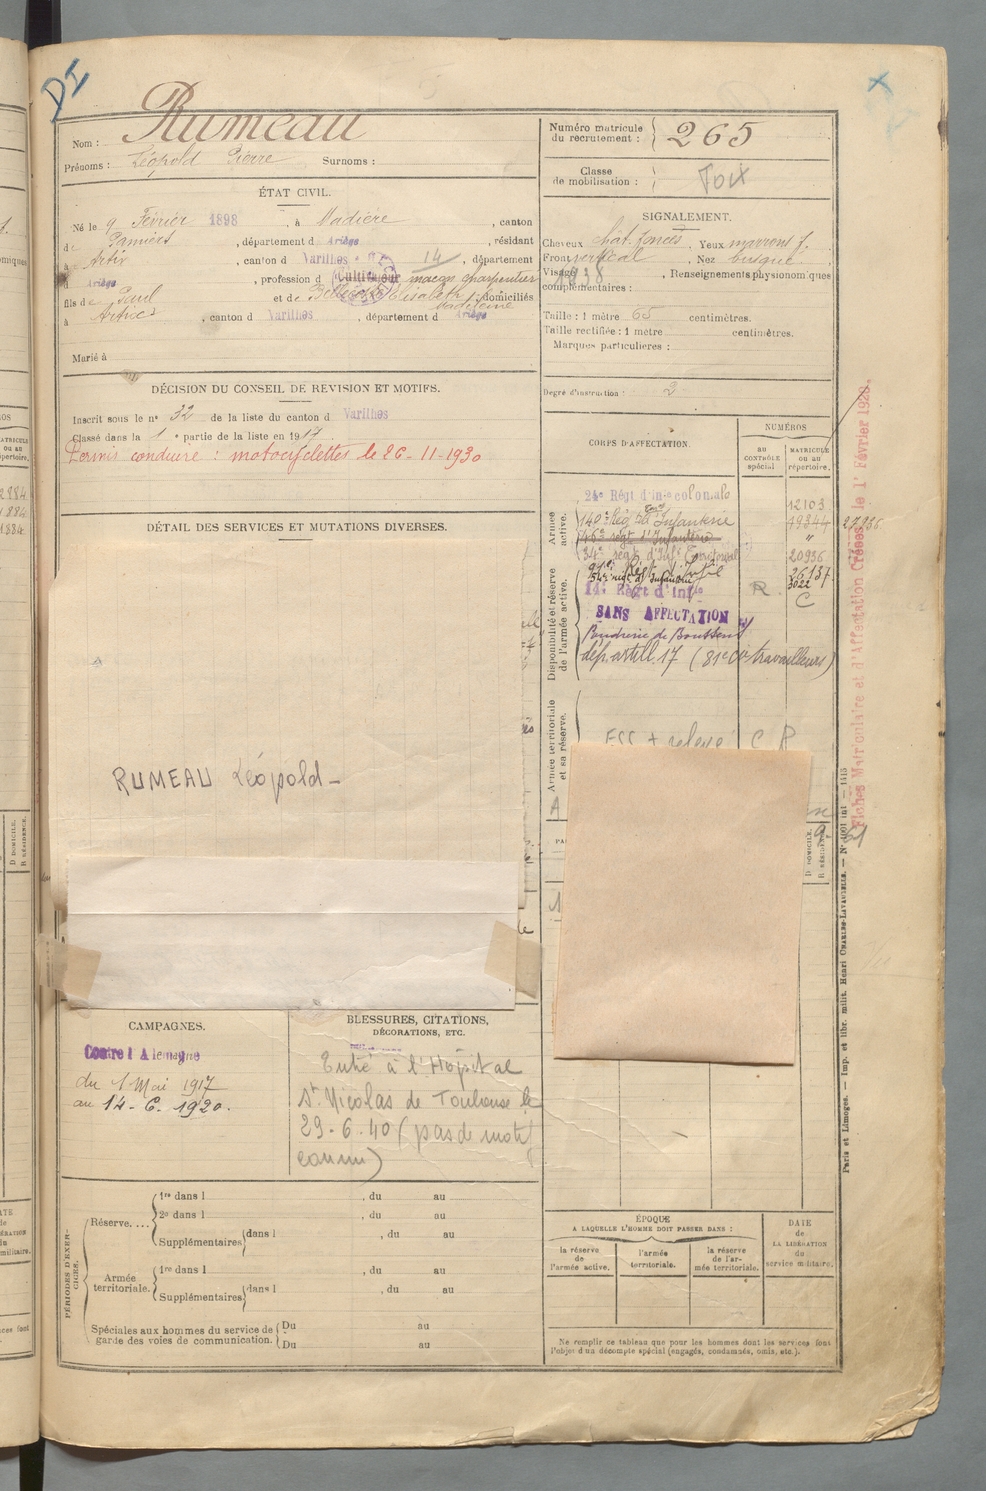 DI
Nom : Rumeau
Prénoms : Léopold Pierre Surnoms :
Numéro matricule du recrutement : 265
Classe de mobilisation : Foix
ÉTAT CIVIL.
Né le 9 Février 1898, à Madière, canton
de Pamiers, département d Ariège, résidant
à Artix, canton d Varilhes, 14, département
d Ariège, profession d Cultivateur maçon charpentier
fils de Paul et de Elisabeth Madeleine, domiciliés
à Artix, canton d Varilhes, département d Ariège
Marié à
SIGNALEMENT.
Cheveux chât. foncés, Yeux marrons f.
Front vertical, Nez busqué
Visage, Renseignements physionomiques
complémentaires :
1938
Taille : 1 mètre 65 centimètres.
Taille rectifiée : 1 mètre centimètres.
Marques particulières :
Degré d'instruction : 2
DÉCISION DU CONSEIL DE REVISION ET MOTIFS.
Inscrit sous le n° 32 de la liste du canton d Varilhes
Classé dans la 1e partie de la liste en 1917
Permis conduire : motocyclettes le 26-11-1930
DÉTAIL DES SERVICES ET MUTATIONS DIVERSES.
RUMEAU Léopold -
CORPS D'AFFECTATION.
NUMÉROS
au CONTRÔLE spécial
MATRICULE ou au répertoire.
Armée active.
24e Régt d'infie coloniale 12103
140e Rég d'Infanterie 19344 27935
46e régt d'Infanterie "
34e régt d'Infie 20936
Disponibilité et réserve de l'armée active.
26137
3022
14e Régt d'Infie R. C
SANS AFFECTATION
Poudrerie de Boussens
dép. artill. 17 (81e Cie travailleurs)
Armée territoriale et sa réserve.
D DOMICILE.
R RÉSIDENCE.
Fiches Matriculaire et d'Affectation Créées le 1er Février 1928.
Paris et Limoges. — Imp. et libr. milit. Henri CHARLES-LAVAUZELLE.
CAMPAGNES.
Contre l'Allemagne
du 1 Mai 1917
au 14-6-1920.
BLESSURES, CITATIONS,
DÉCORATIONS, ETC.
Entré à l'Hôpital
St Nicolas de Toulouse le
29-6-40 (pas de motif
connu)
PÉRIODES D'EXERCICES.
Réserve....
1re dans l , du au
2e dans l , du au
Supplémentaires dans l , du au
Armée territoriale.
1re dans l , du au
Supplémentaires dans l , du au
Spéciales aux hommes du service de garde des voies de communication.
Du au
Du au
ÉPOQUE
A LAQUELLE L'HOMME DOIT PASSER DANS :
la réserve de l'armée active.
l'armée territoriale.
la réserve de l'armée territoriale.
DATE de LA LIBÉRATION du service militaire.
Ne remplir ce tableau que pour les hommes dont les services font
l'objet d'un décompte spécial (engagés, condamnés, omis, etc.).